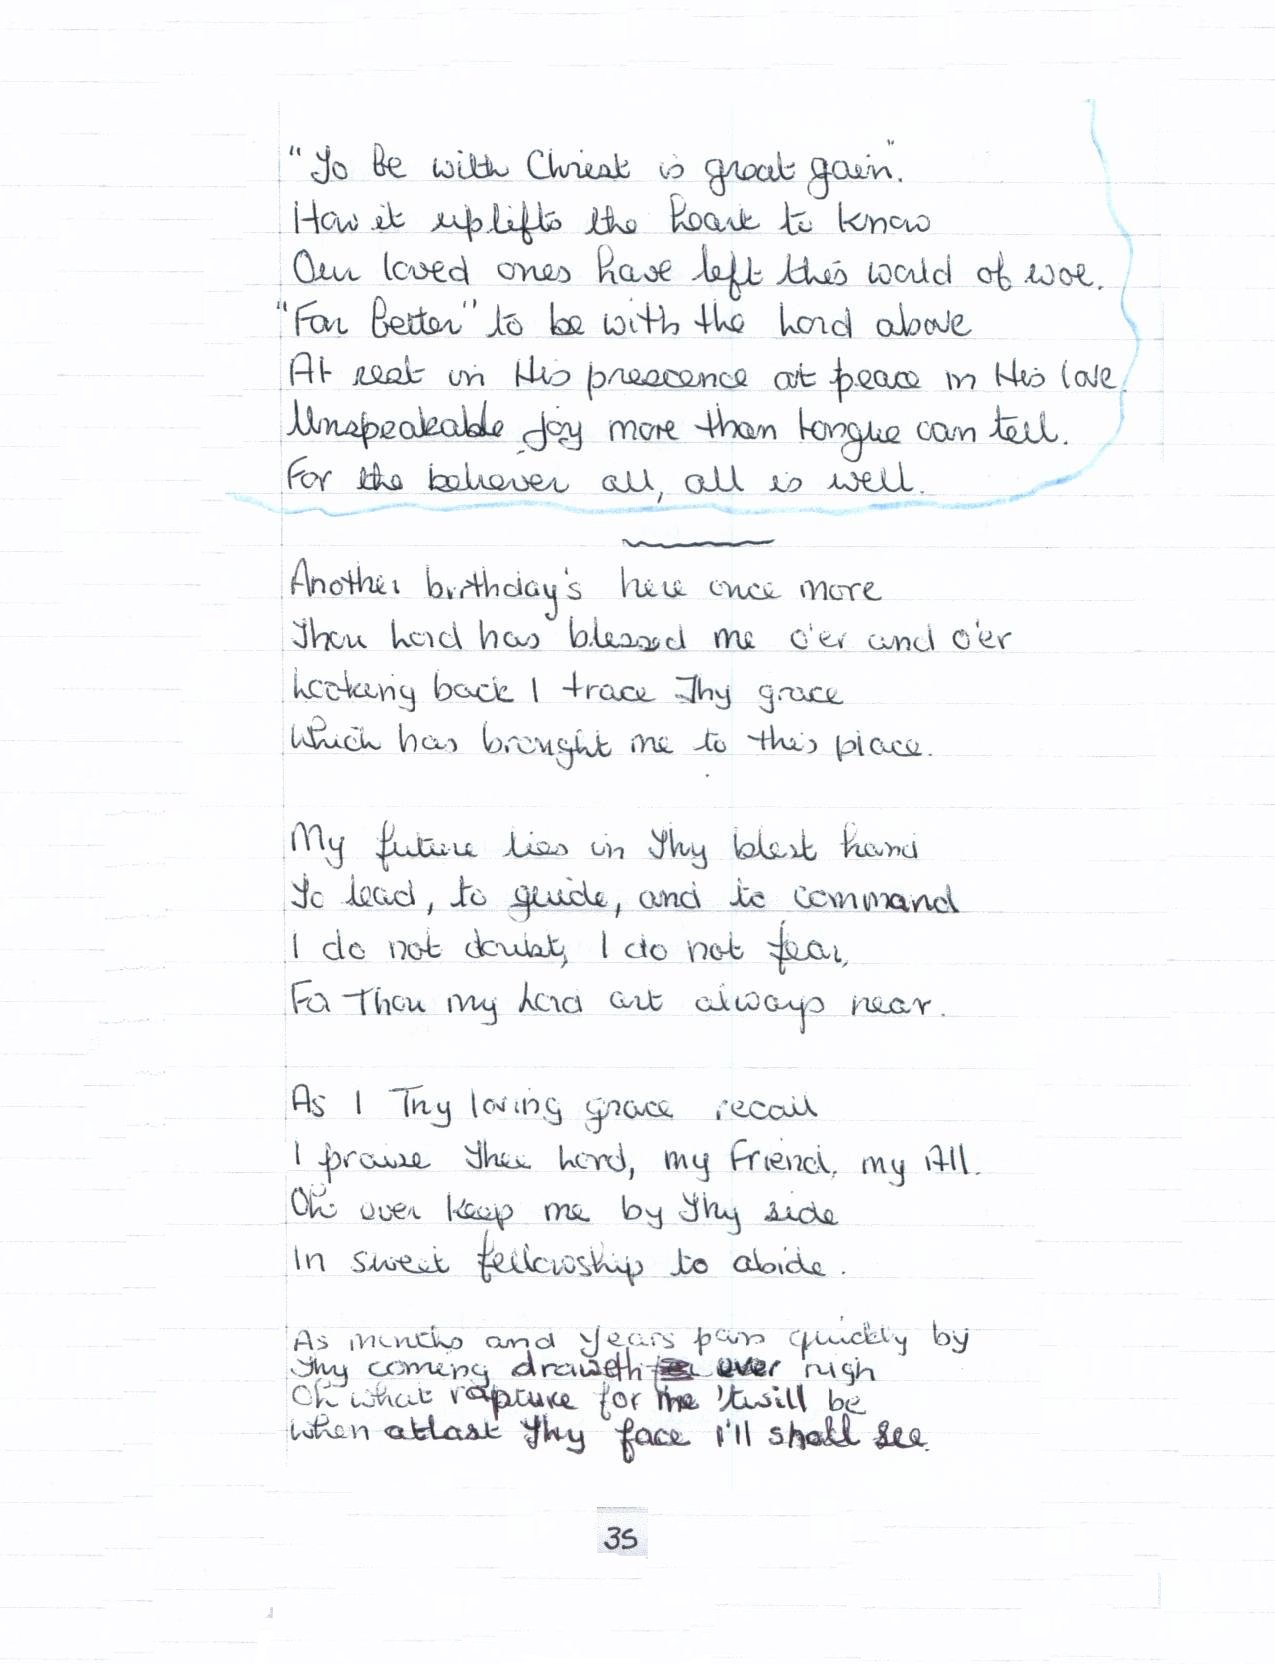 "To be with Christ is great gain".
How it uplifts the heart to know
Our loved ones have left this world of woe.
"Far better" to be with the Lord above
At rest in His prescence at peace in His love.
Unspeakable joy more than tongue can tell.
For the believer all, all is well.
Another birthday's here once more
Thou Lord has blessed me o'er and o'er
Looking back I trace Thy grace
Which has brought me to this place.
My future lies in Thy blest hand
To lead, to guide, and to command
I do not doubt, I do not fear,
For Thou my Lord art always near.
As I Thy loving grace recall
I praise Thee Lord, my Friend, my All.
Oh ever keep me by Thy side
In sweet fellowship to abide.
As months and years pass quickly by
Thy coming draweth ever nigh
Oh what rapture for me 'twill be
When at last Thy face I'll shall see.
35